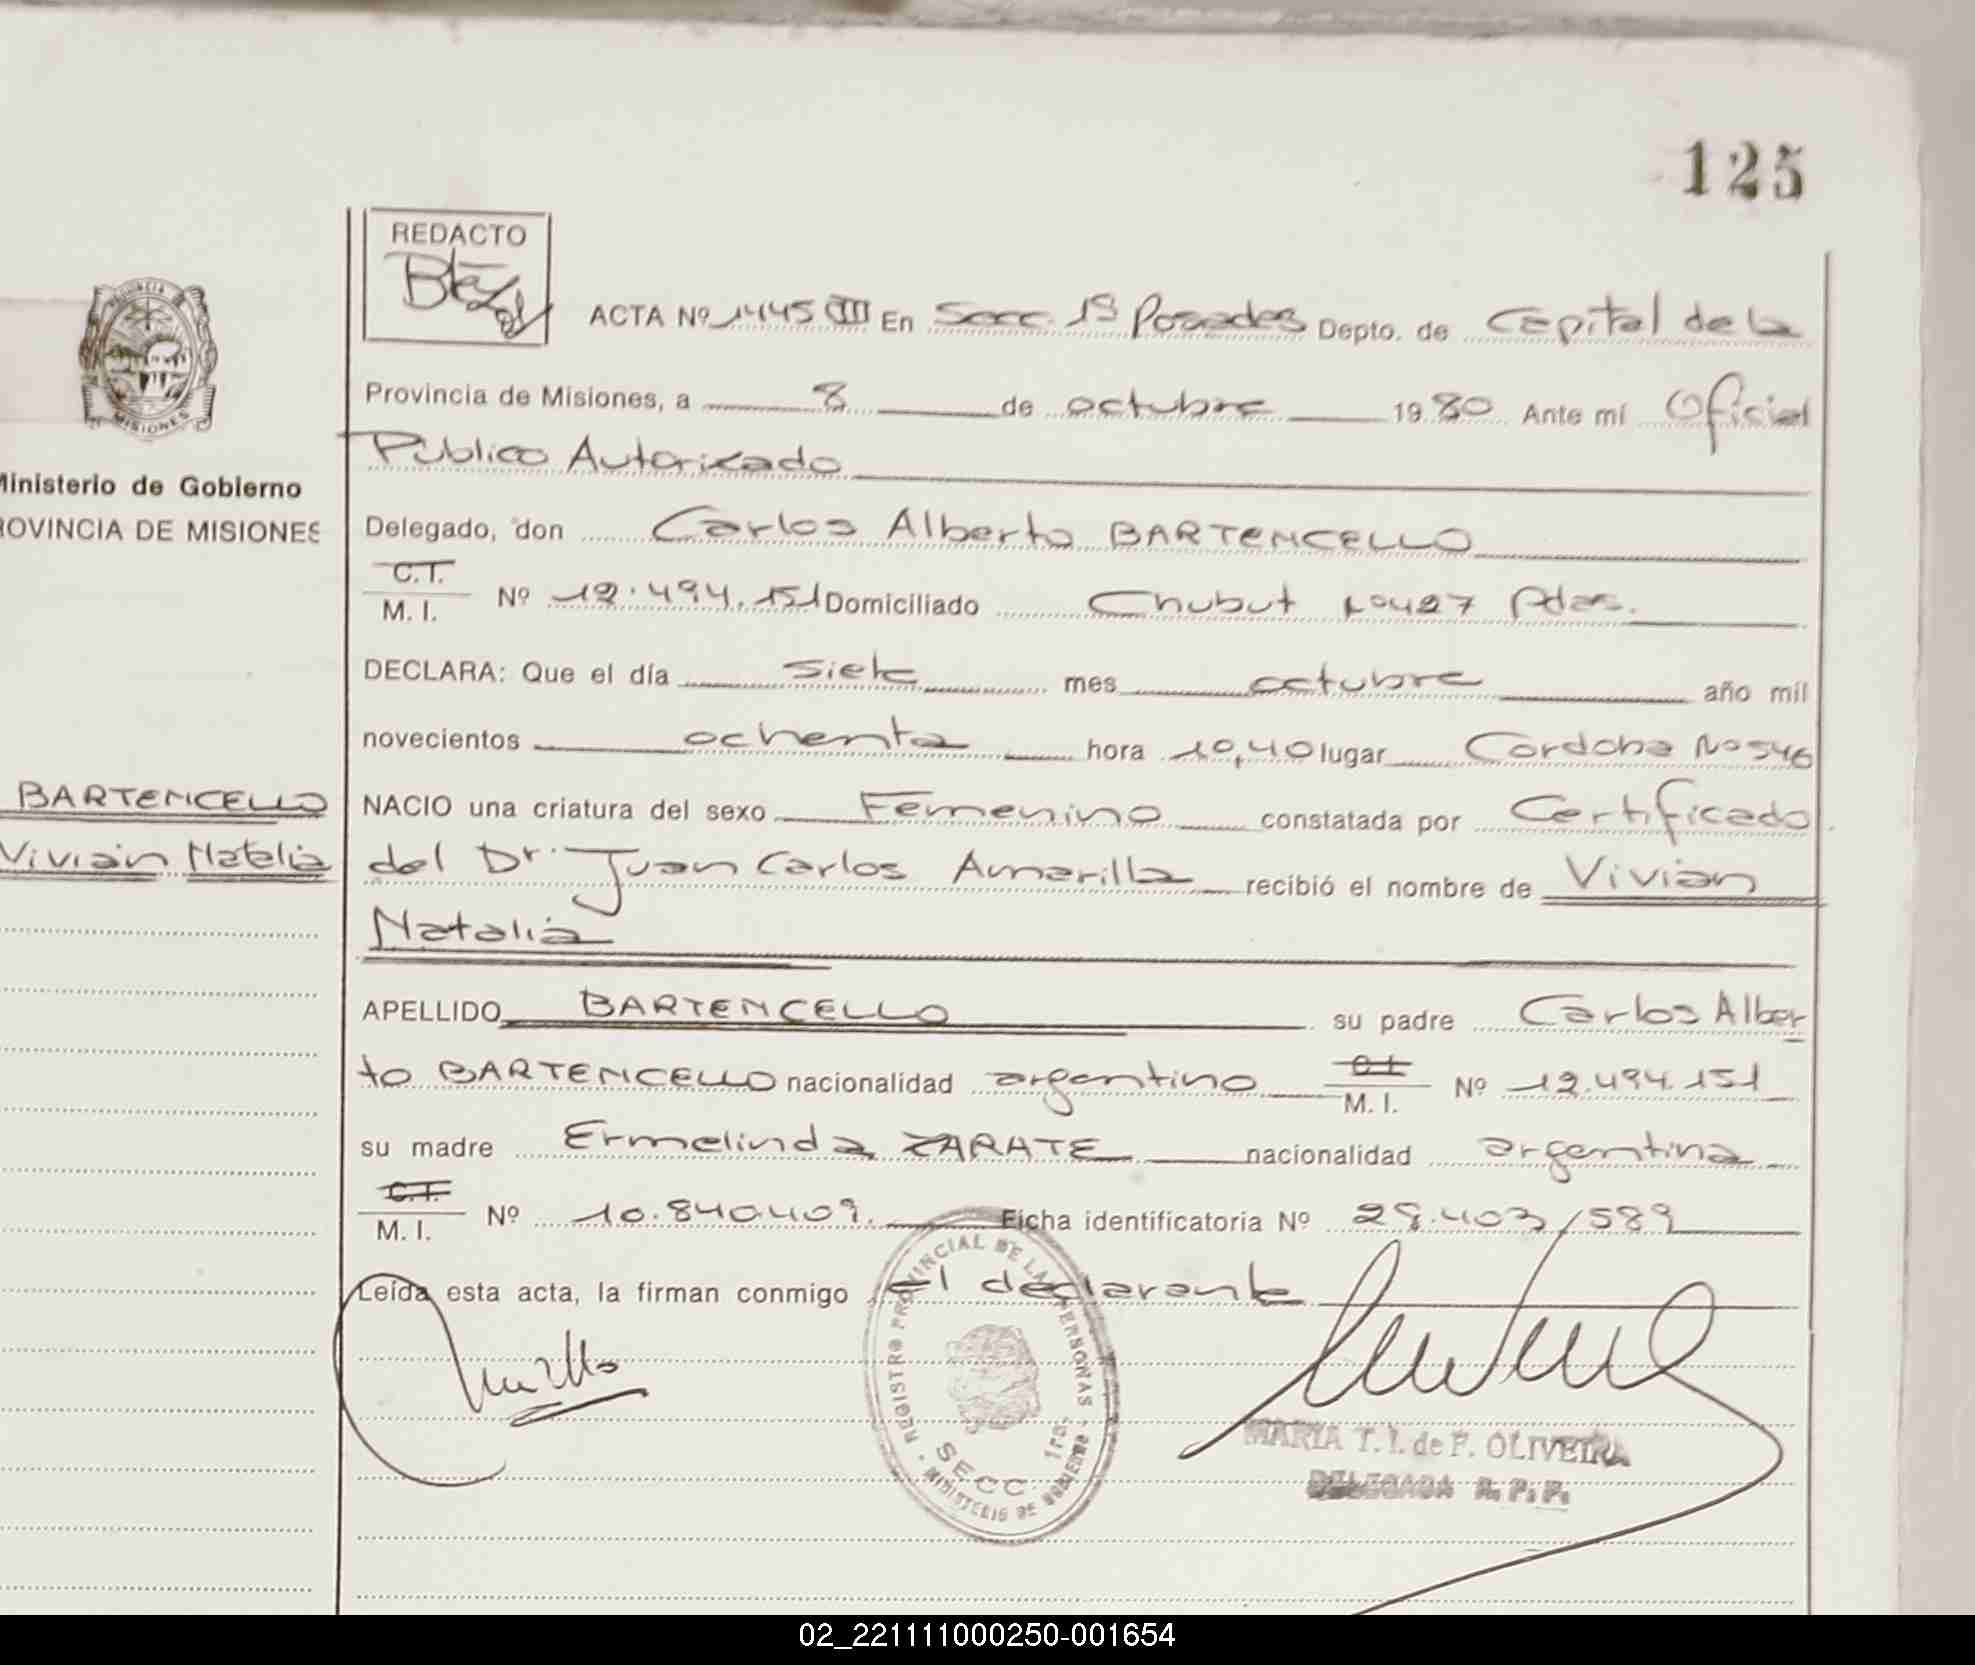 125
REDACTO
ACTA Nº 1445 III En Secc. 1ª Posadas Depto. de Capital de la
PROVINCIA DE MISIONES
Provincia de Misiones, a 8 de octubre 1980 Ante mí Oficial
Publico Autorizado
Ministerio de Gobierno
PROVINCIA DE MISIONES
Delegado, don Carlos Alberto BARTENCELLO
C.I.
M. I. Nº 12.494.151 Domiciliado Chubut Nº 427 Pdas.
DECLARA: Que el día siete mes octubre año mil
novecientos ochenta hora 10,40 lugar Cordoba Nº 546
BARTENCELLO
Vivian Natalia
NACIO una criatura del sexo Femenino constatada por Certificado
del Dr. Juan Carlos Amarilla recibió el nombre de Vivian
Natalia
APELLIDO BARTENCELLO su padre Carlos Alber
to BARTENCELLO nacionalidad argentino C.I. M. I. Nº 12.494.151
su madre Ermelinda ZARATE nacionalidad argentina
C.I.
M. I. Nº 10.840.409. Ficha identificatoria Nº 28.403/589
Leída esta acta, la firman conmigo el declarante
REGISTRO PROVINCIAL DE LAS PERSONAS - MINISTERIO DE GOBIERNO
SECC. 1ra.
MARIA T. I. de F. OLIVEIRA
DELEGADA R. P. P.
02_221111000250-001654